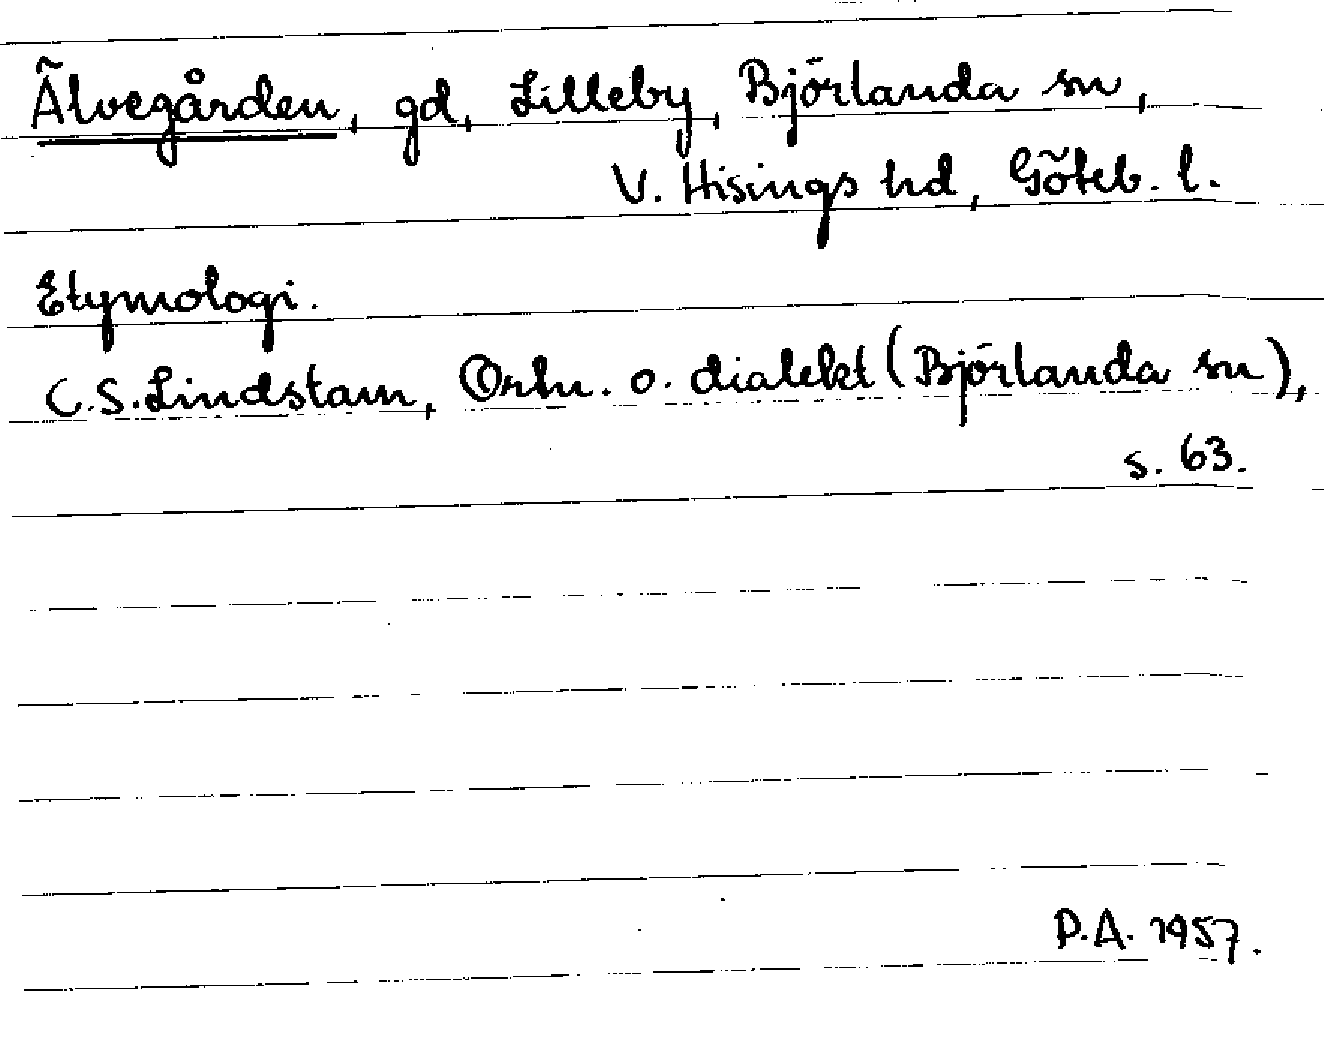 Älvegården, gd, Lilleby, Björlanda sn,
V. Hisings hd, Göteb. l.
Etymologi.
C.S. Lindstam, Ortn. o. dialekt (Björlanda sn),
s. 63.
P.A. 1957.